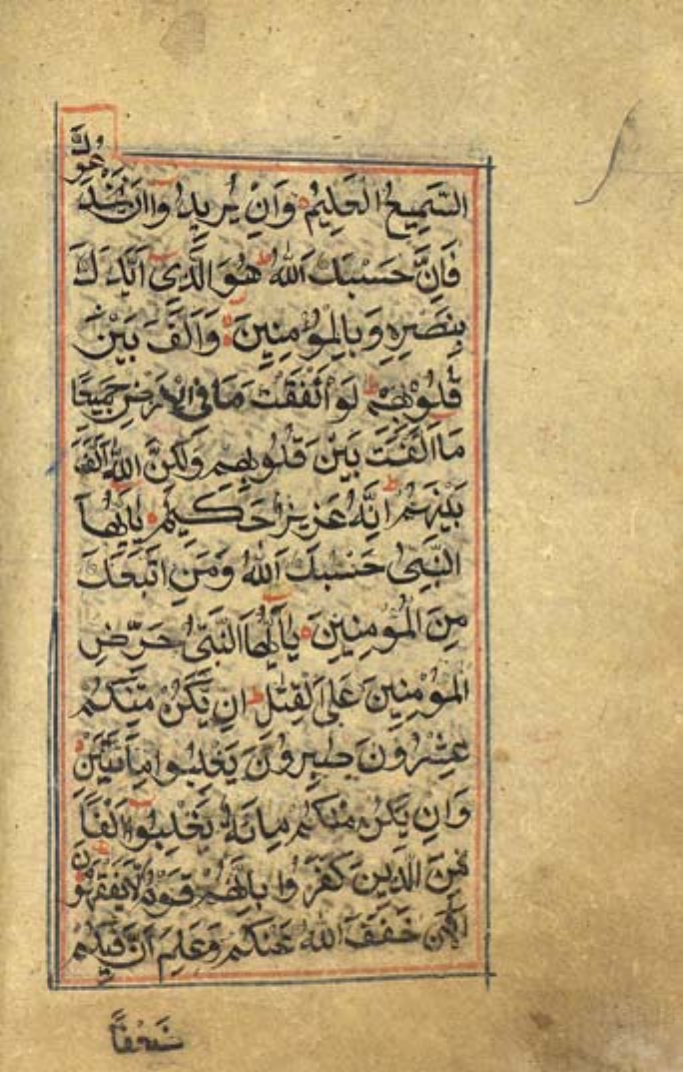 السَّمِيعُ الْعَلِيمُ وَاِنْ يُرِيدُوا اَنْ يَخْدَعُوكَ
فَاِنَّ حَسْبَكَ اللهُ هُوَ الَّذِي اَيَّدَكَ
بِنَصْرِهِ وَبِالْمُؤْمِنِينَ وَاَلَّفَ بَيْنَ
قُلُوبِهِمْ لَوْ اَنْفَقْتَ مَا فِي الْاَرْضِ جَمِيعًا
مَا اَلَّفْتَ بَيْنَ قُلُوبِهِمْ وَلَكِنَّ اللهَ اَلَّفَ
بَيْنَهُمْ اِنَّهُ عَزِيزٌ حَكِيمٌ يَاَيُّهَا
النَّبِيُّ حَسْبُكَ اللهُ وَمَنِ اتَّبَعَكَ
مِنَ الْمُؤْمِنِينَ يَاَيُّهَا النَّبِيُّ حَرِّضِ
الْمُؤْمِنِينَ عَلَى الْقِتٰلِ اِنْ يَّكُنْ مِّنْكُمْ
عِشْرُونَ صٰبِرُونَ يَغْلِبُوا مِائَتَيْنِ
وَاِنْ يَكُنْ مِنْكُمْ مِائَةٌ يَغْلِبُوا اَلْفًا
مِنَ الَّذِينَ كَفَرُوا بِاَنَّهُمْ قَوْمٌ لَا يَفْقَهُونَ
اَلْاٰنَ خَفَّفَ اللهُ عَنْكُمْ وَعَلِمَ اَنَّ فِيكُمْ
ضَعْفًا